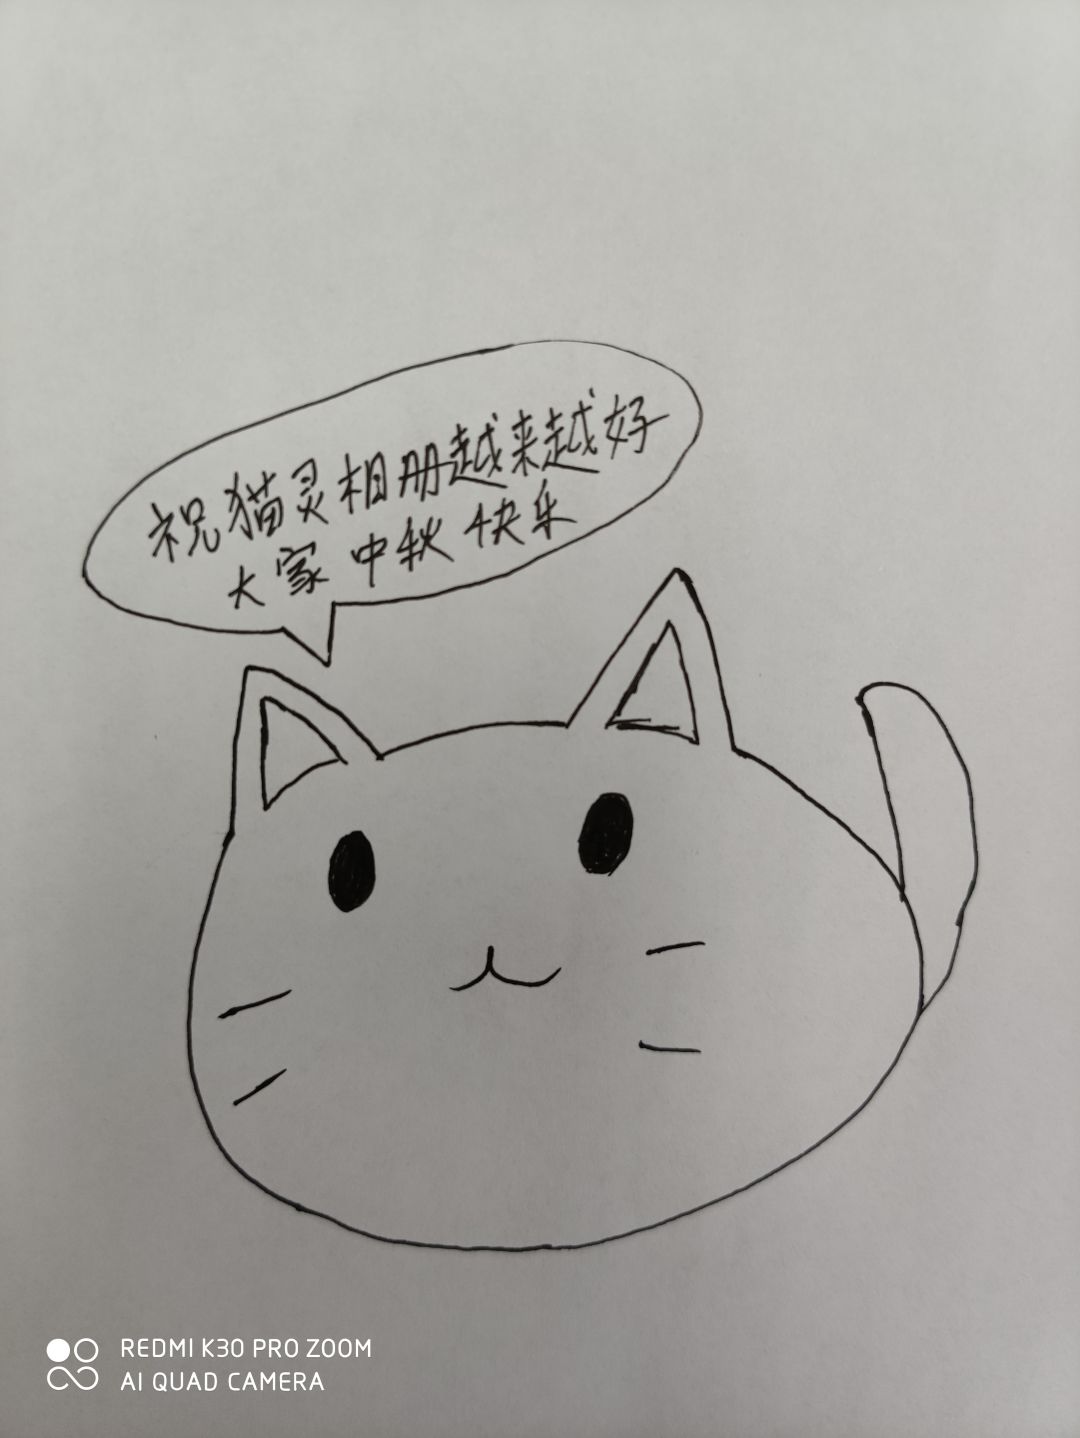 祝猫灵相册越来越好
大家中秋快乐
REDMI K30 PRO ZOOM
AI QUAD CAMERA